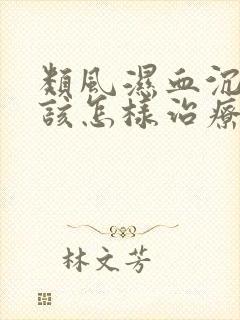 類風濕血沉
該怎樣治療
林文芳